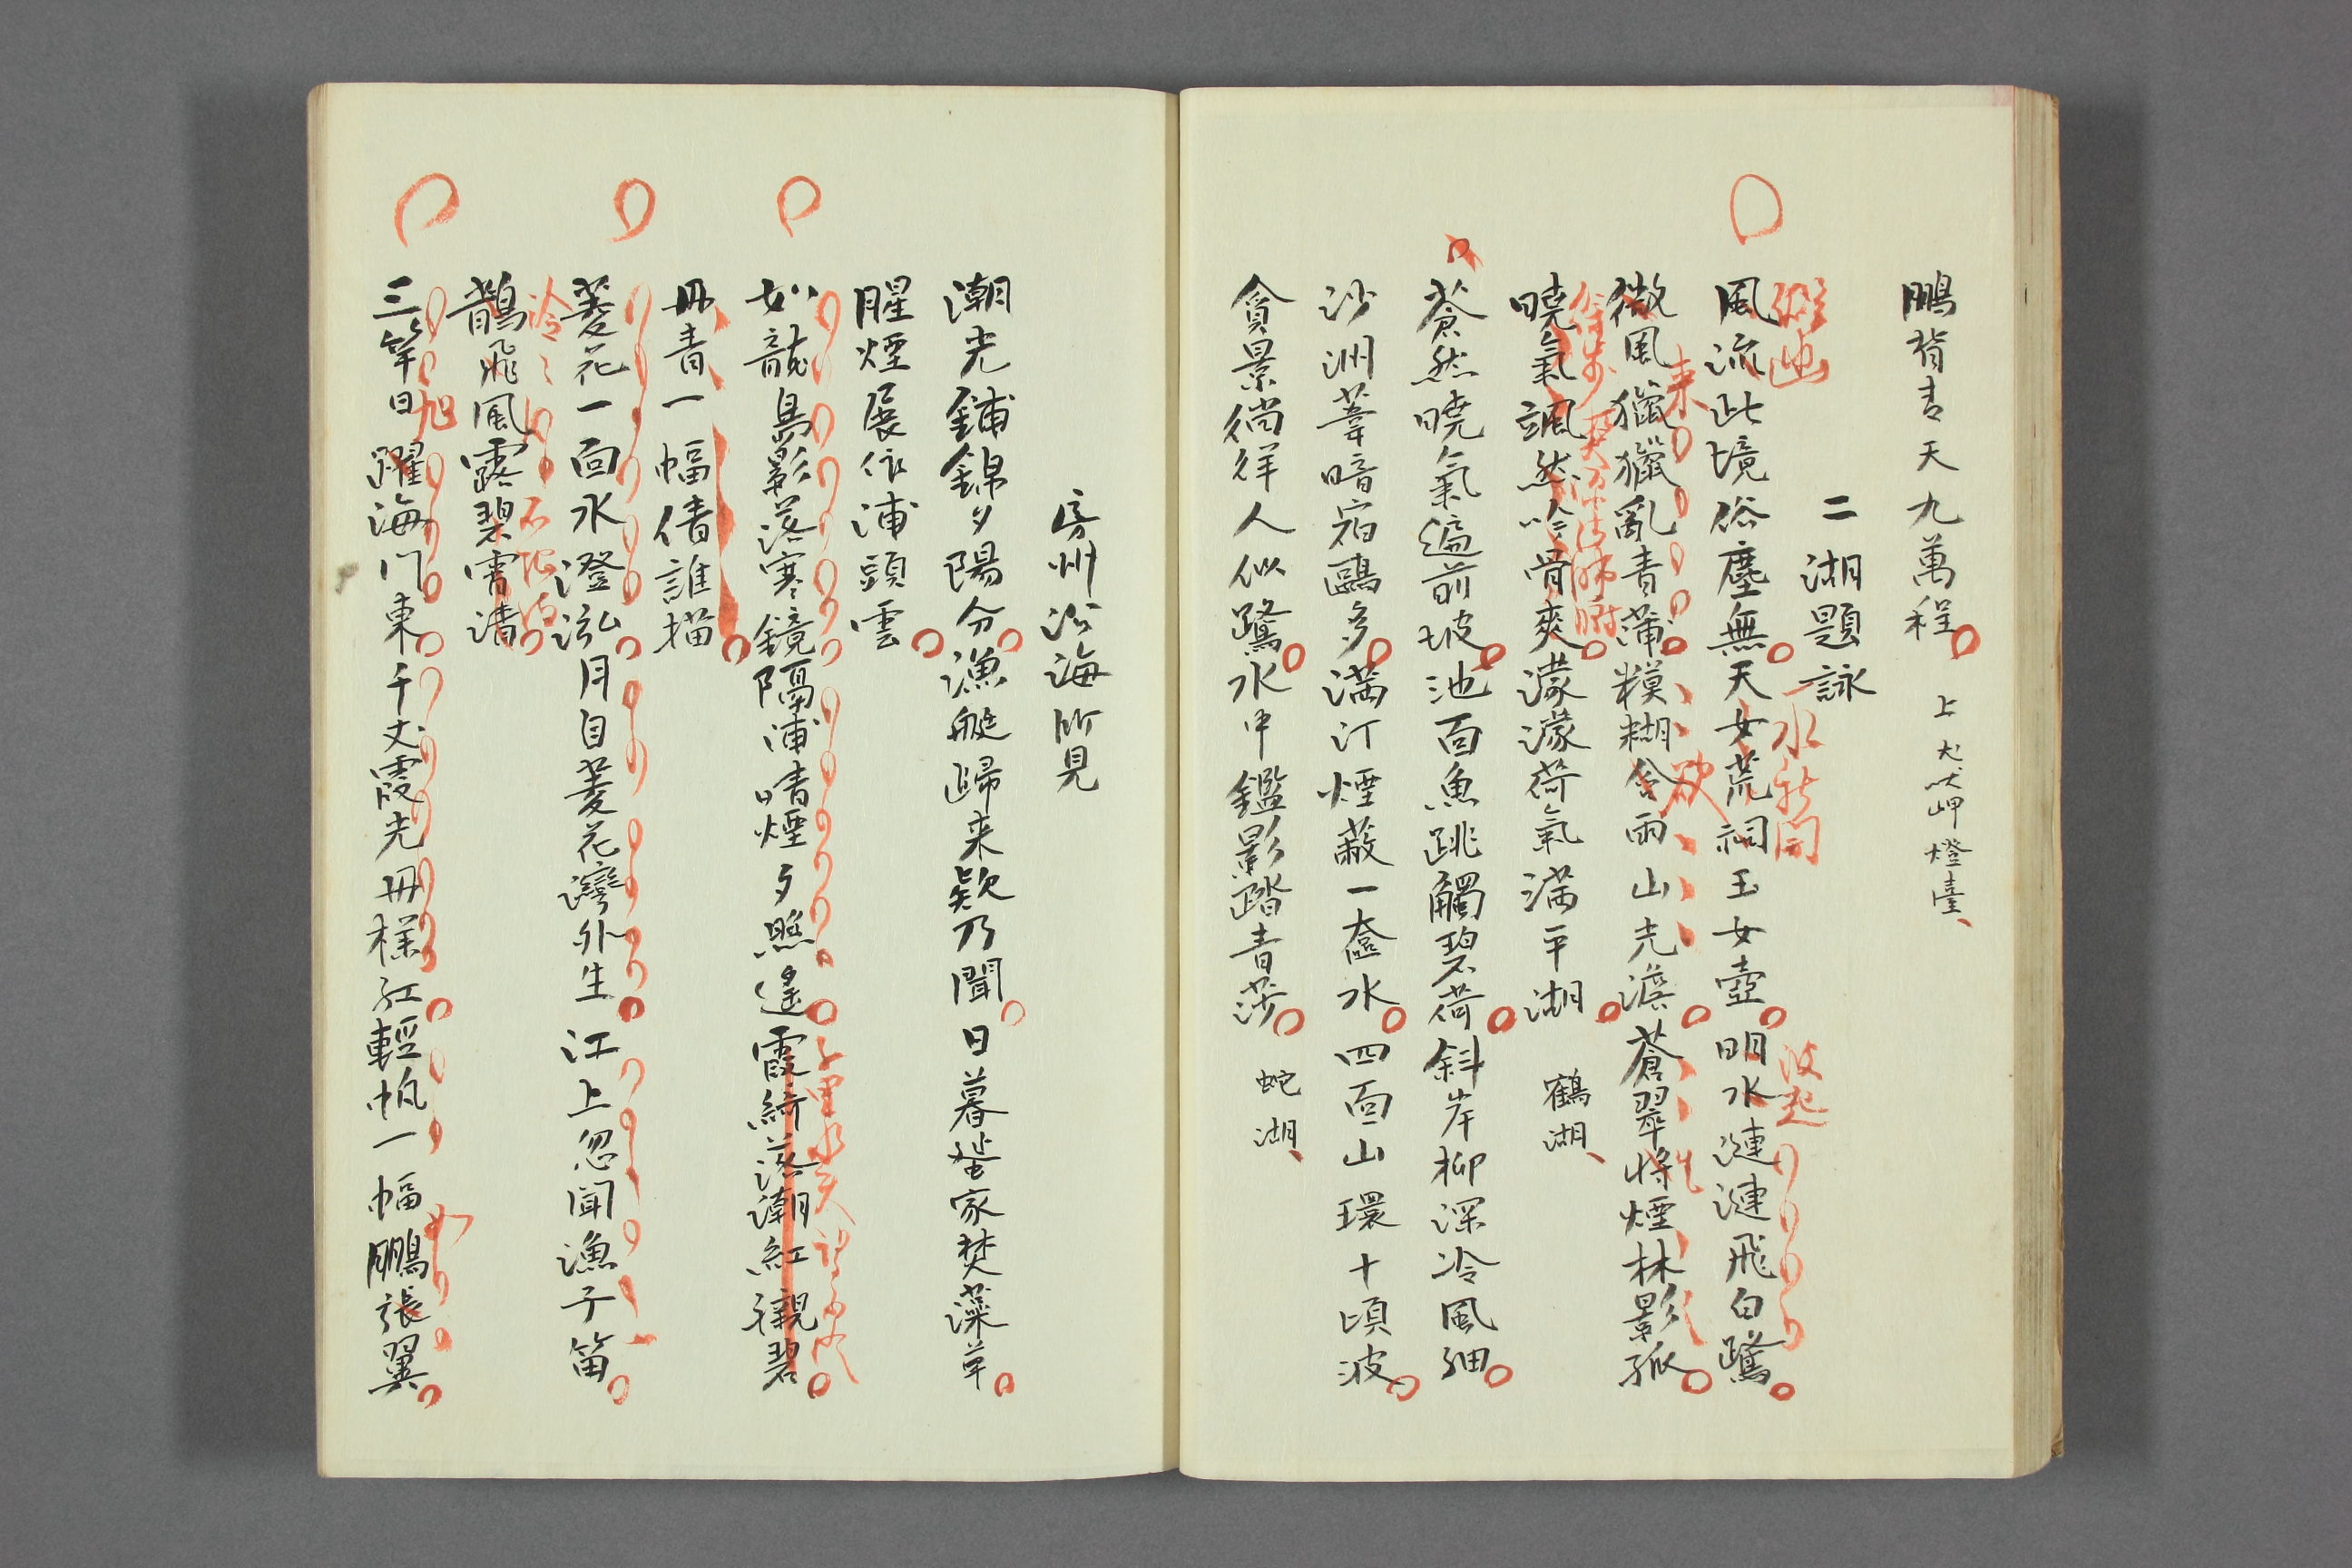 鵬背青天九萬程 上犬吠岬燈臺、
二湖題詠
風流此境俗塵無天女荒祠玉女壺明水漣漣飛白鷺
微風獵獵亂青蒲糢糊含雨山光澹蒼翠將煙林影孤
曉氣颯然吟骨爽濛濛荷氣滿平湖 鶴湖、
蒼然曉氣遍前坡池面魚跳觸碧荷斜岸柳深冷風細
沙洲葦暗宿鷗多滿汀煙蔽一奩水四面山環十頃波
貪景徜徉人似鷺水中鑑影踏青莎 蛇湖、
房州沿海所見
潮光鋪錦夕陽分漁艇歸来欵乃聞日暮蜑家焚藻草
腥煙展作浦頭雲
如龍島影落寒鏡隔浦晴煙夕照遙霞綺落潮紅襯碧
丹青一幅倩誰描
菱花一面水澄泓月自菱花灣外生江上忽聞漁子笛
鵲飛風露碧霄清
三竿日躍海門東千丈霞光丹樣紅輕帆一幅鵬張翼